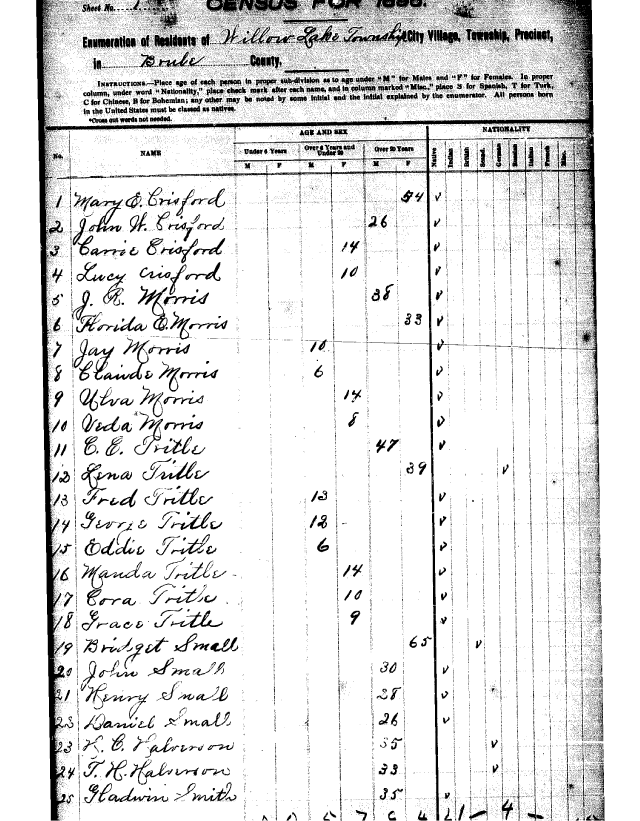 Sheet No. 1
CENSUS FOR 1895.
Enumeration of Residents of Willow Lake Township City Village, Township, Precinct,
in Brule County.
INSTRUCTIONS.—Place age of each person in proper sub-division as to age under "M" for Males and "F" for Females. In proper
column, under word "Nationality," place check mark after each name, and in column marked "Misc.," place S for Spanish, T for Turk,
C for Chinese, B for Bohemian; any other may be noted by some initial and the initial explained by the enumerator. All persons born
in the United States must be classed as natives.
*Cross out words not needed.
No. NAME AGE AND SEX NATIONALITY
Under 6 Years Over 6 Years and Under 20 Over 20 Years
M F M F M F Native Indian British Scand. German Russian Italian French Misc.
1 Mary E. Crisford 54 v
2 John W. Crisford 26 v
3 Carrie Crisford 14 v
4 Lucy Crisford 10 v
5 J. R. Morris 38 v
6 Florida E. Morris 33 v
7 Jay Morris 10 v
8 Claude Morris 6 v
9 Ulva Morris 14 v
10 Veda Morris 8 v
11 C. E. Tritle 47 v
12 Lena Tritle 39 v
13 Fred Tritle 13 v
14 George Tritle 12 v
15 Eddie Tritle 6 v
16 Manda Tritle 14 v
17 Cora Tritle 10 v
18 Grace Tritle 9 v
19 Bridget Small 65 v
20 John Small 30 v
21 Henry Small 28 v
22 Daniel Small 26 v
23 K. C. Halverson 35 v
24 T. H. Halverson 33 v
25 Gladwin Smith 35 v